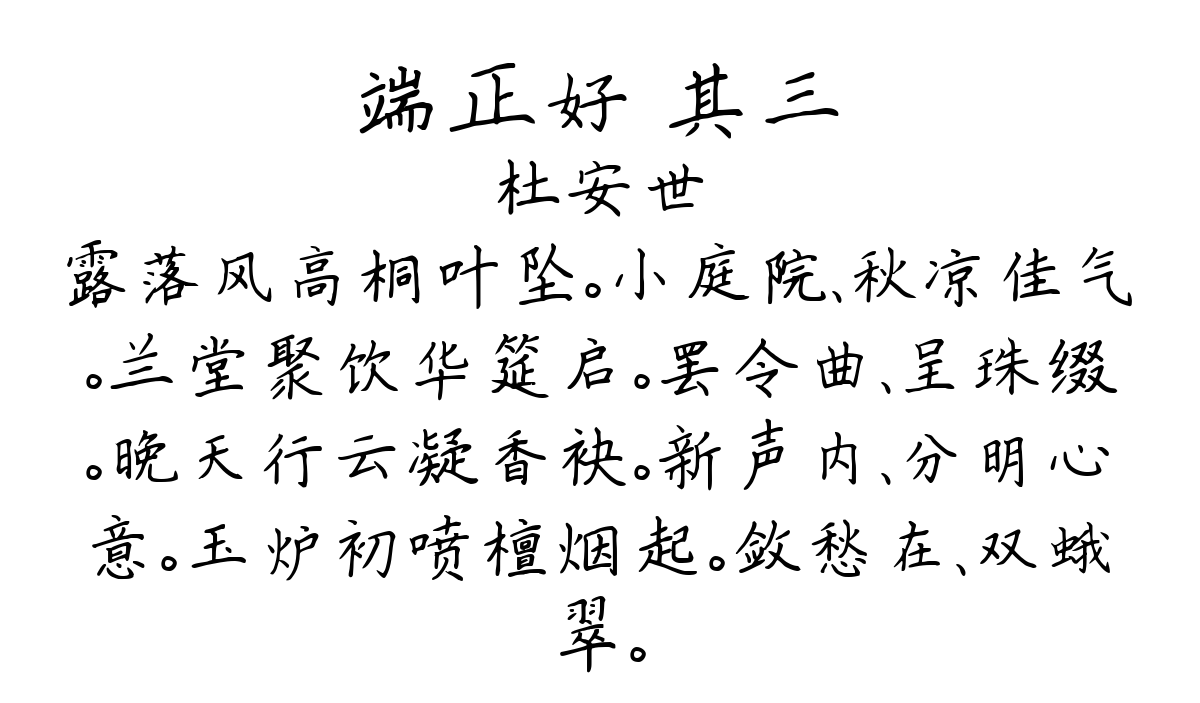 端正好 其三
杜安世
露落风高桐叶坠。小庭院、秋凉佳气
。兰堂聚饮华筵启。罢令曲、呈珠缀
。晚天行云凝香袂。新声内、分明心
意。玉炉初喷檀烟起。敛愁在、双蛾
翠。